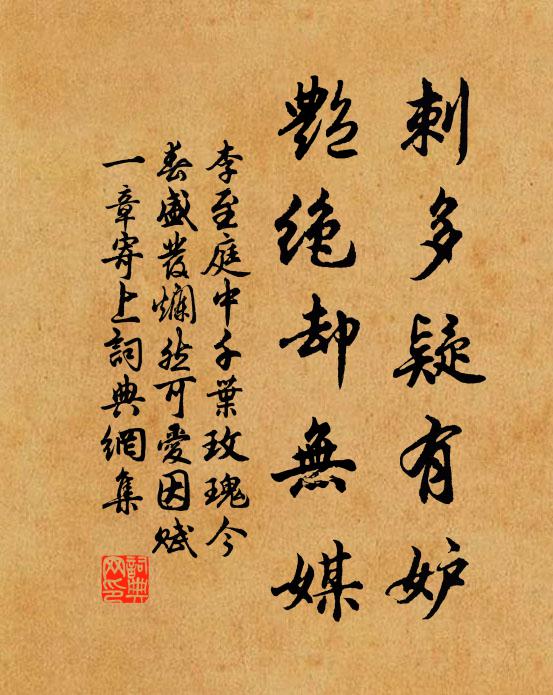 刺多疑有妒
艷絕却無媒
李至庭中千葉玫瑰今
春盛發爛然可愛因賦
一章寄上詞典網集
詞典網印